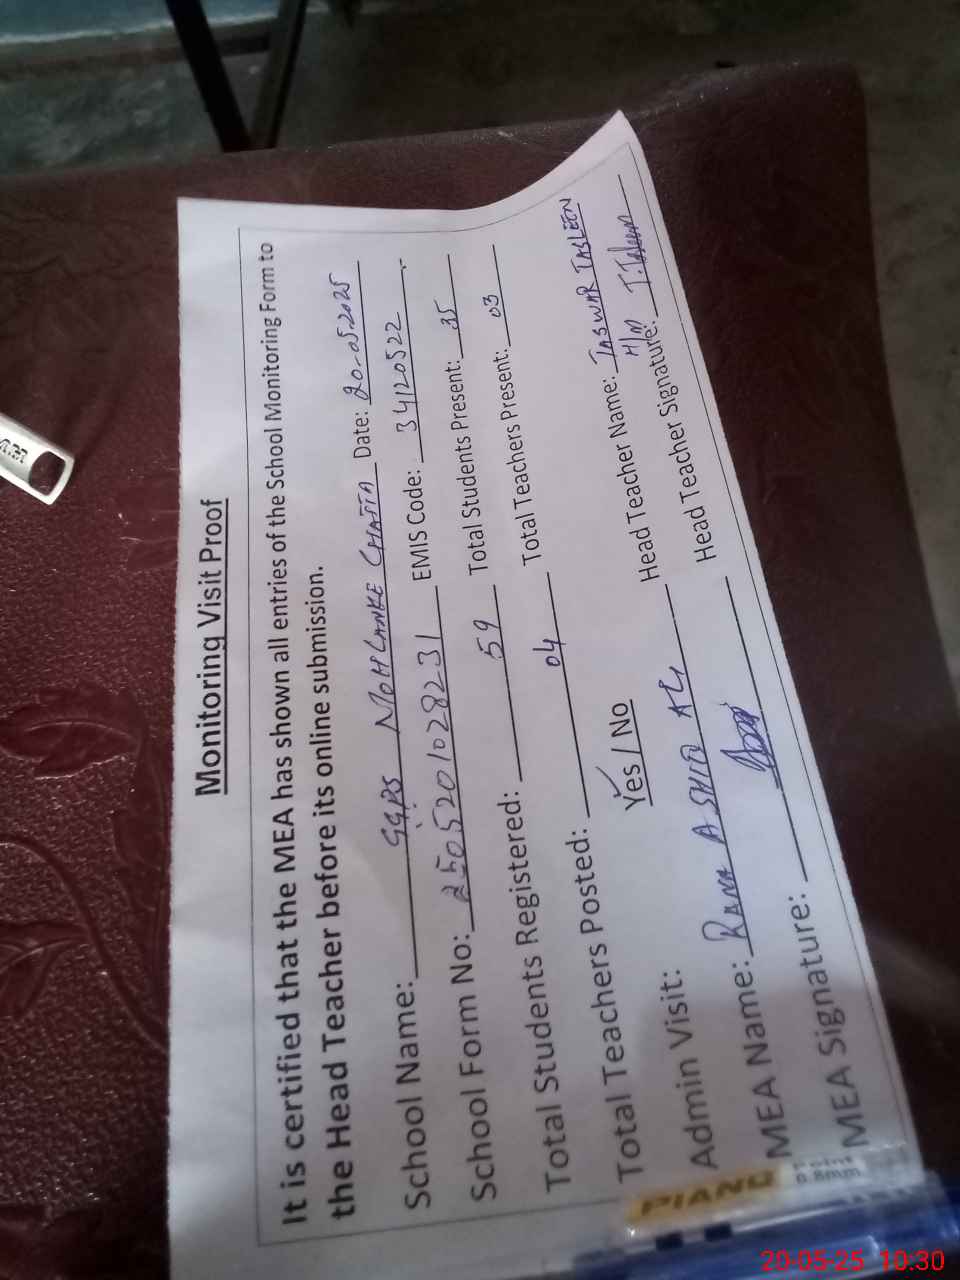 Monitoring Visit Proof
It is certified that the MEA has shown all entries of the School Monitoring Form to
the Head Teacher before its online submission.
School Name: GGPS MOHLANKE CHATTA Date: 20-05-2025
School Form No: 2505201028231 EMIS Code: 34120522
Total Students Registered: 59 Total Students Present: 35
Total Teachers Posted: 04 Total Teachers Present: 03
Admin Visit: Yes / No Head Teacher Name: TASWAR TASLEEN
H/M
MEA Name: RANA ASHIQ ALI Head Teacher Signature: T. Taleem
MEA Signature:
PIANO Point
0.8mm
20-05-25 10:30